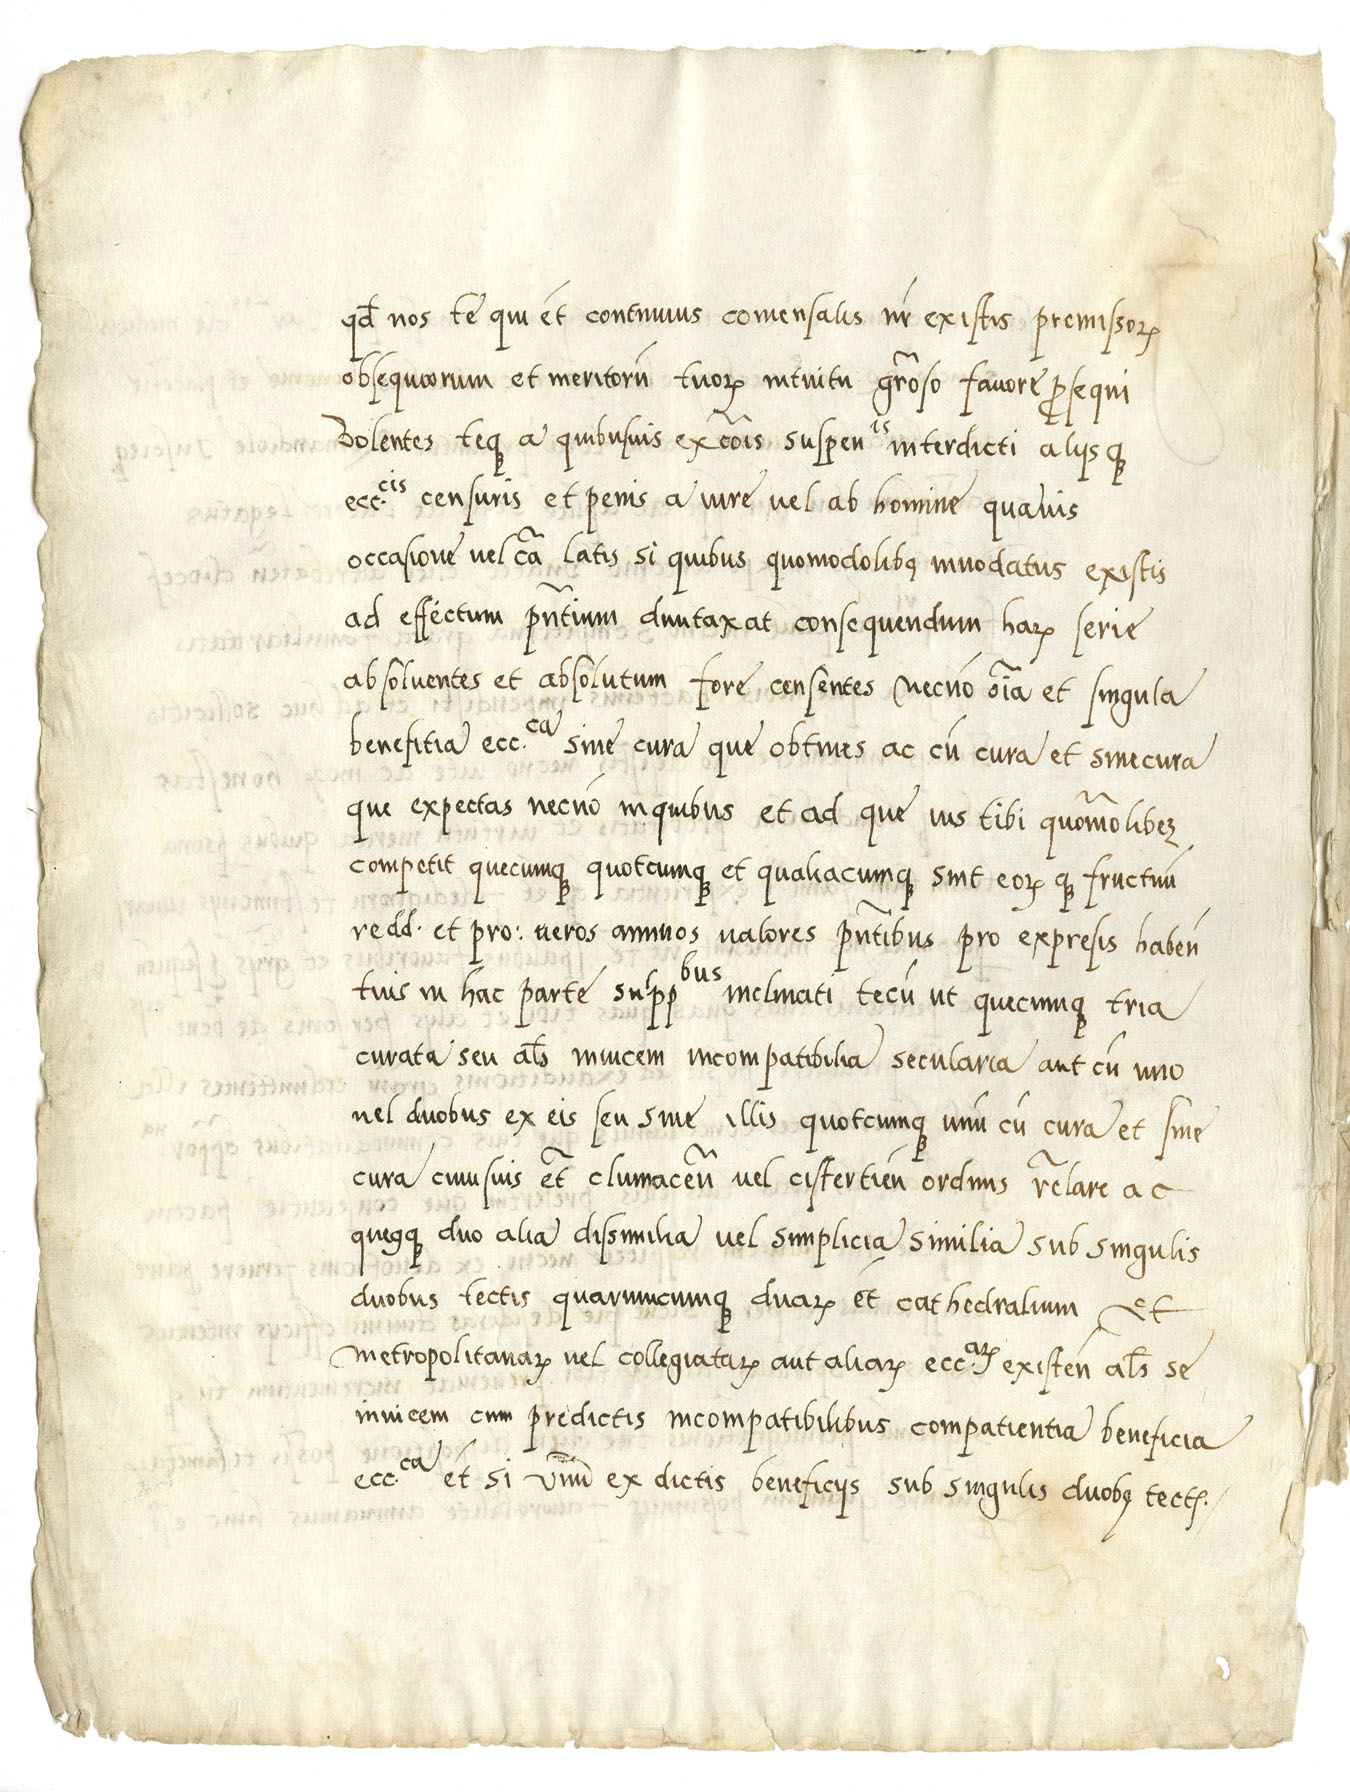 qd̄ nos te qui ēt continuus comensalis nr̄ existis premissoꝝ
obsequiorum et meritorū tuoꝝ intuitu gr̄oso fauore ꝓsequi
Volentes teqꝫ a quibusuis excōis suspenis interdicti alijsqꝫ
ecc.cis censuris et penis a iure uel ab homine quauis
occasione uel cā latis si quibus quomodolibꝫ innodatus existis
ad effectum pn̄tium duntaxat consequendum haꝝ serie
absoluentes et absolutum fore censentes necnō oīa et singula
benefitia ecc.ca sine cura que obtines ac cū cura et sinecura
que expectas necnō inquibus et ad que ius tibi quōmolibeꝫ
competit quecumqꝫ quotcumqꝫ et qualiacumqꝫ sint eoꝝqꝫ fructuū
redd. et pro: ueros annuos ualores pn̄tibus pro expresis habeñ
tuis in hac parte suppbus inclinati tecū ut quecumqꝫ tria
curata seu al̄s inuicem incompatibilia secularia aut cū uno
uel duobus ex eis seu sine illis quotcumqꝫ unū cū cura et sine
cura cuiusuis ēt cluniaceñ uel cistertieñ ordinis r̄elare ac
queqꝫ duo alia dissimilia uel simplicia similia sub singulis
duobus tectis quarumcumqꝫ duaꝝ ēt cathedralium et
metropolitanaꝝ uel collegiataꝝ aut aliaꝝ ecc.aꝝ existeñ al̄s se
inuicem cum predictis incompatibilibus compatientia beneficia
ecc.ca ēt si unū ex dictis beneficijs sub singulis duobꝫ tect.